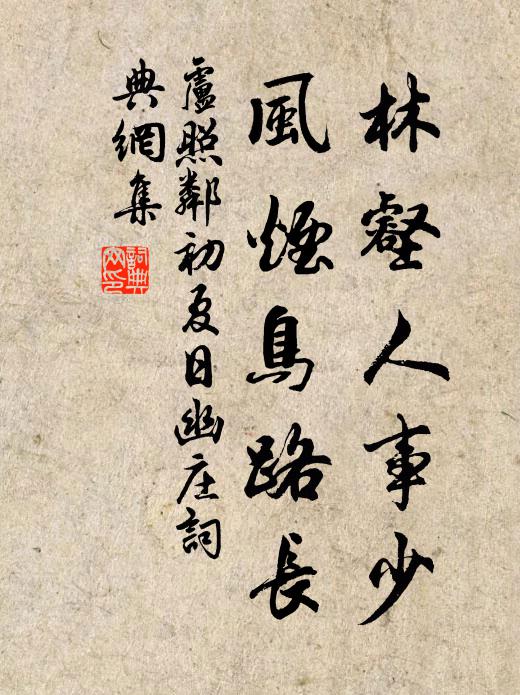 林壑人事少
風煙鳥路長
盧照鄰初夏日幽庄詞
典網集
詞典
文印